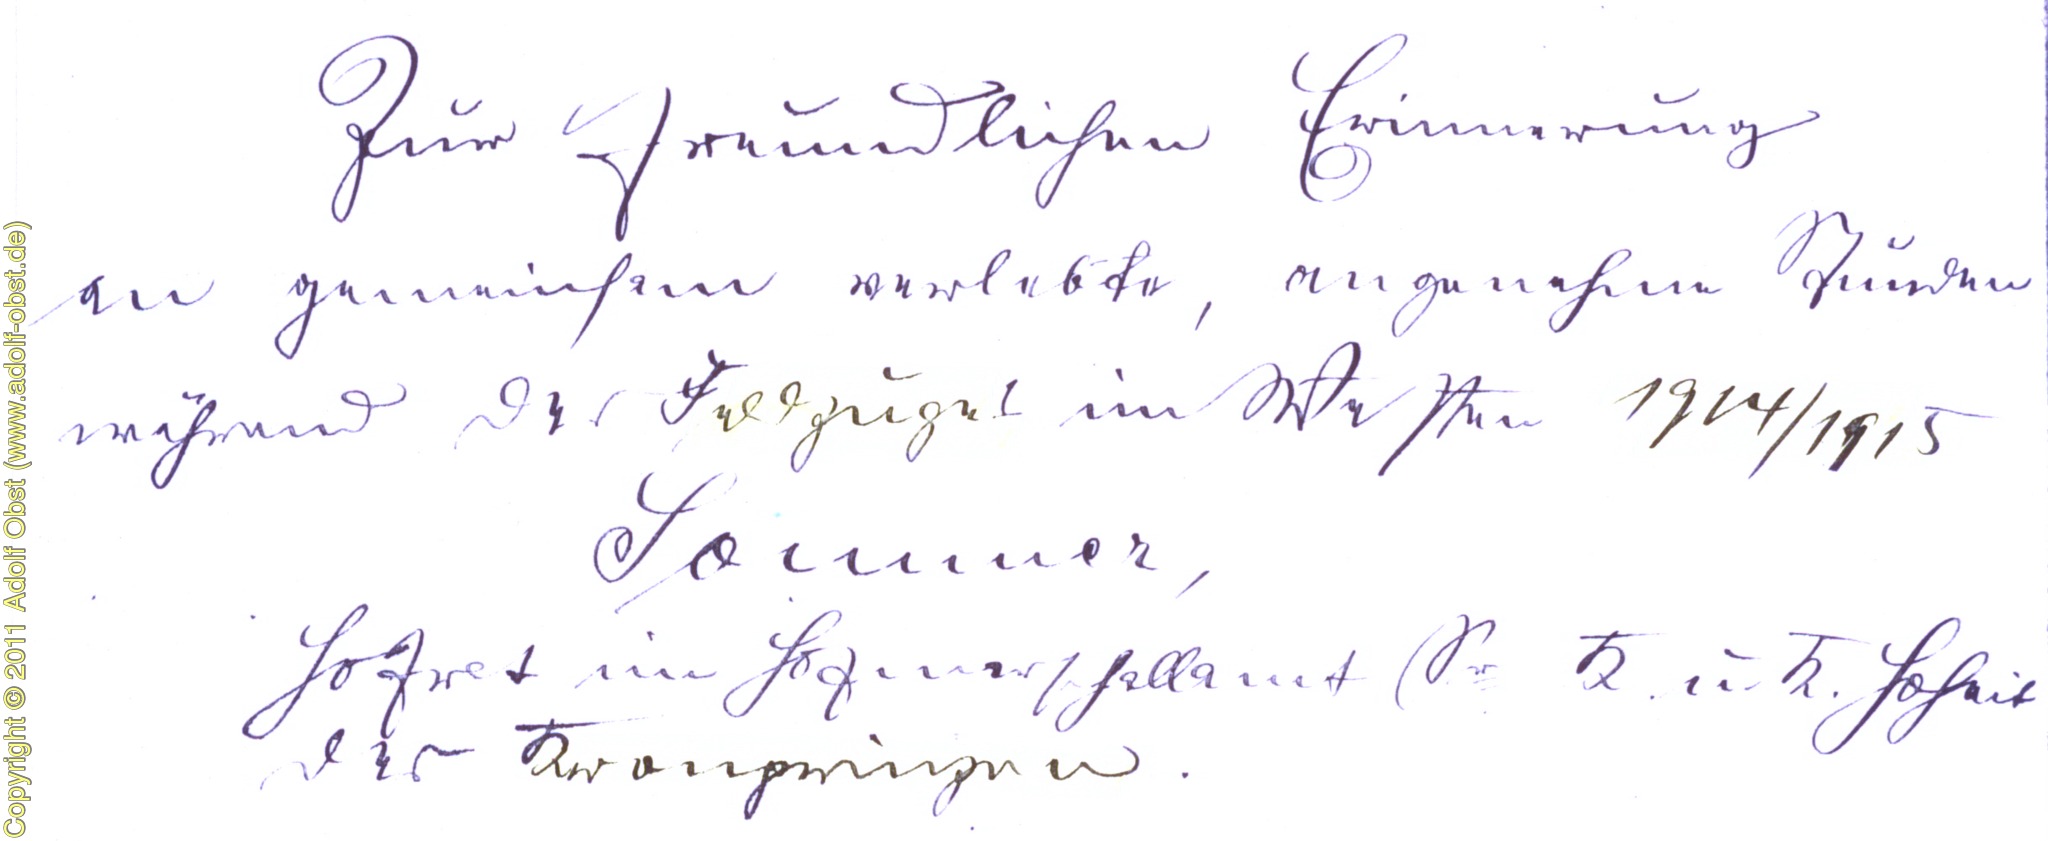 Zur freundlichen Erinnerung
an gemeinsam verlebte, angenehme Stunden
während des Feldzuges im Westen 1914/1915
Sommer,
Hofrat im Hofmarschallamt Sr K. u. K. Hoheit
des Kronprinzen.
Copyright © 2011 Adolf Obst (www.adolf-obst.de)